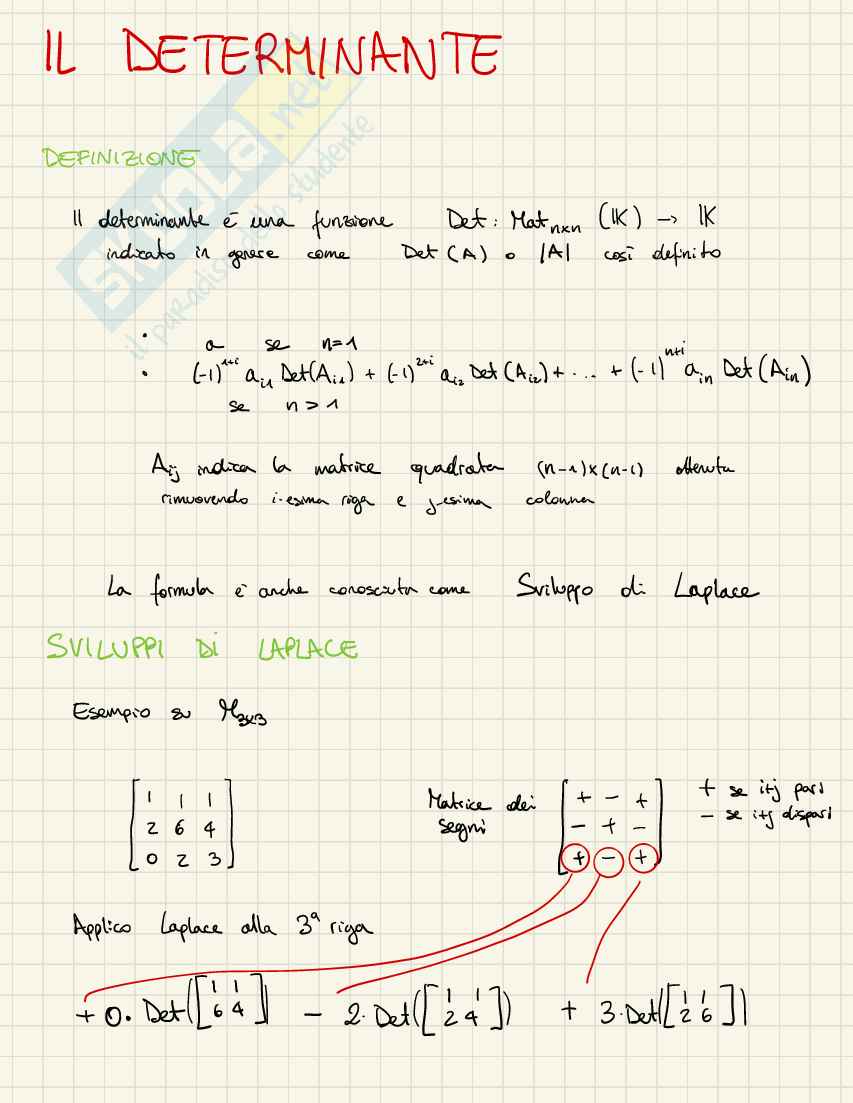 IL DETERMINANTE
DEFINIZIONE
Il determinante è una funzione Det : Mat_{n×n} (𝕂) → 𝕂
indicato in genere come Det (A) o |A| così definito
• a se n=1
• (-1)^{1+i} a_{i1} Det(A_{i1}) + (-1)^{2+i} a_{i2} Det(A_{i2}) + ... + (-1)^{n+i} a_{in} Det(A_{in})
se n > 1
A_{ij} indica la matrice quadrata (n-1)×(n-1) ottenuta
rimuovendo i-esima riga e j-esima colonna
La formula è anche conosciuta come Sviluppo di Laplace
SVILUPPI DI LAPLACE
Esempio su M_{3x3}
[1 1 1
2 6 4
0 2 3]
Matrice dei segni
[+ - +
- + -
+ - +]
+ se i+j pari
- se i+j dispari
Applico Laplace alla 3ª riga
+ 0 · Det([1 1
6 4]) - 2 · Det([1 1
2 4]) + 3 · Det([1 1
2 6])
SKUOLA.net
il paradiso dello studente